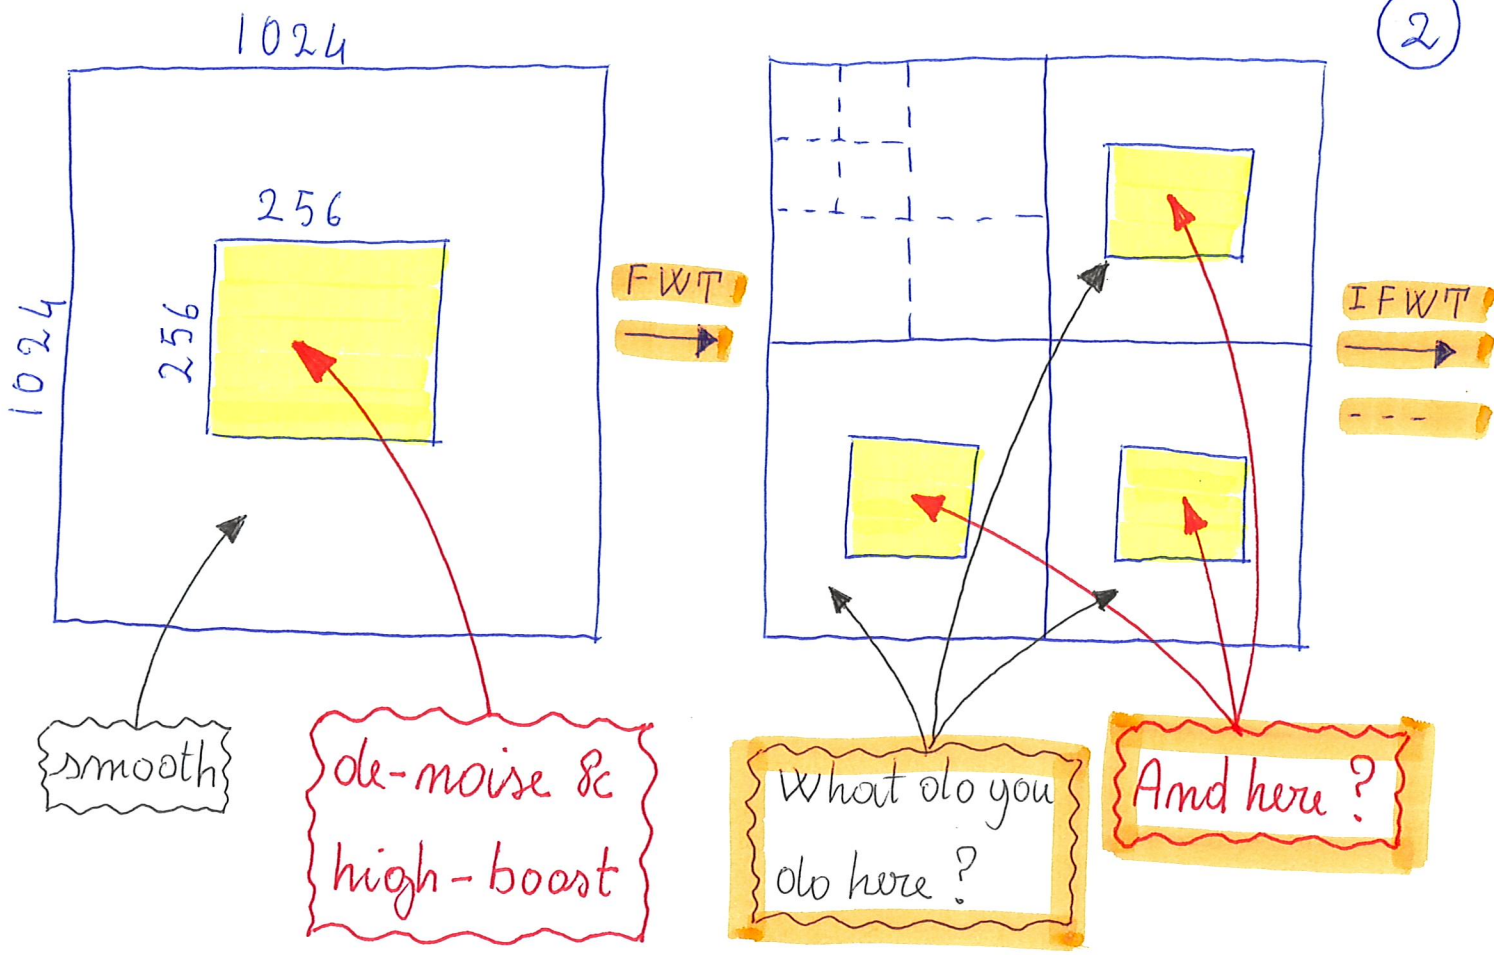 2
1024
1024
256
256
FWT
IFWT
smooth
de-noise &
high-boost
What do you
do here?
And here?